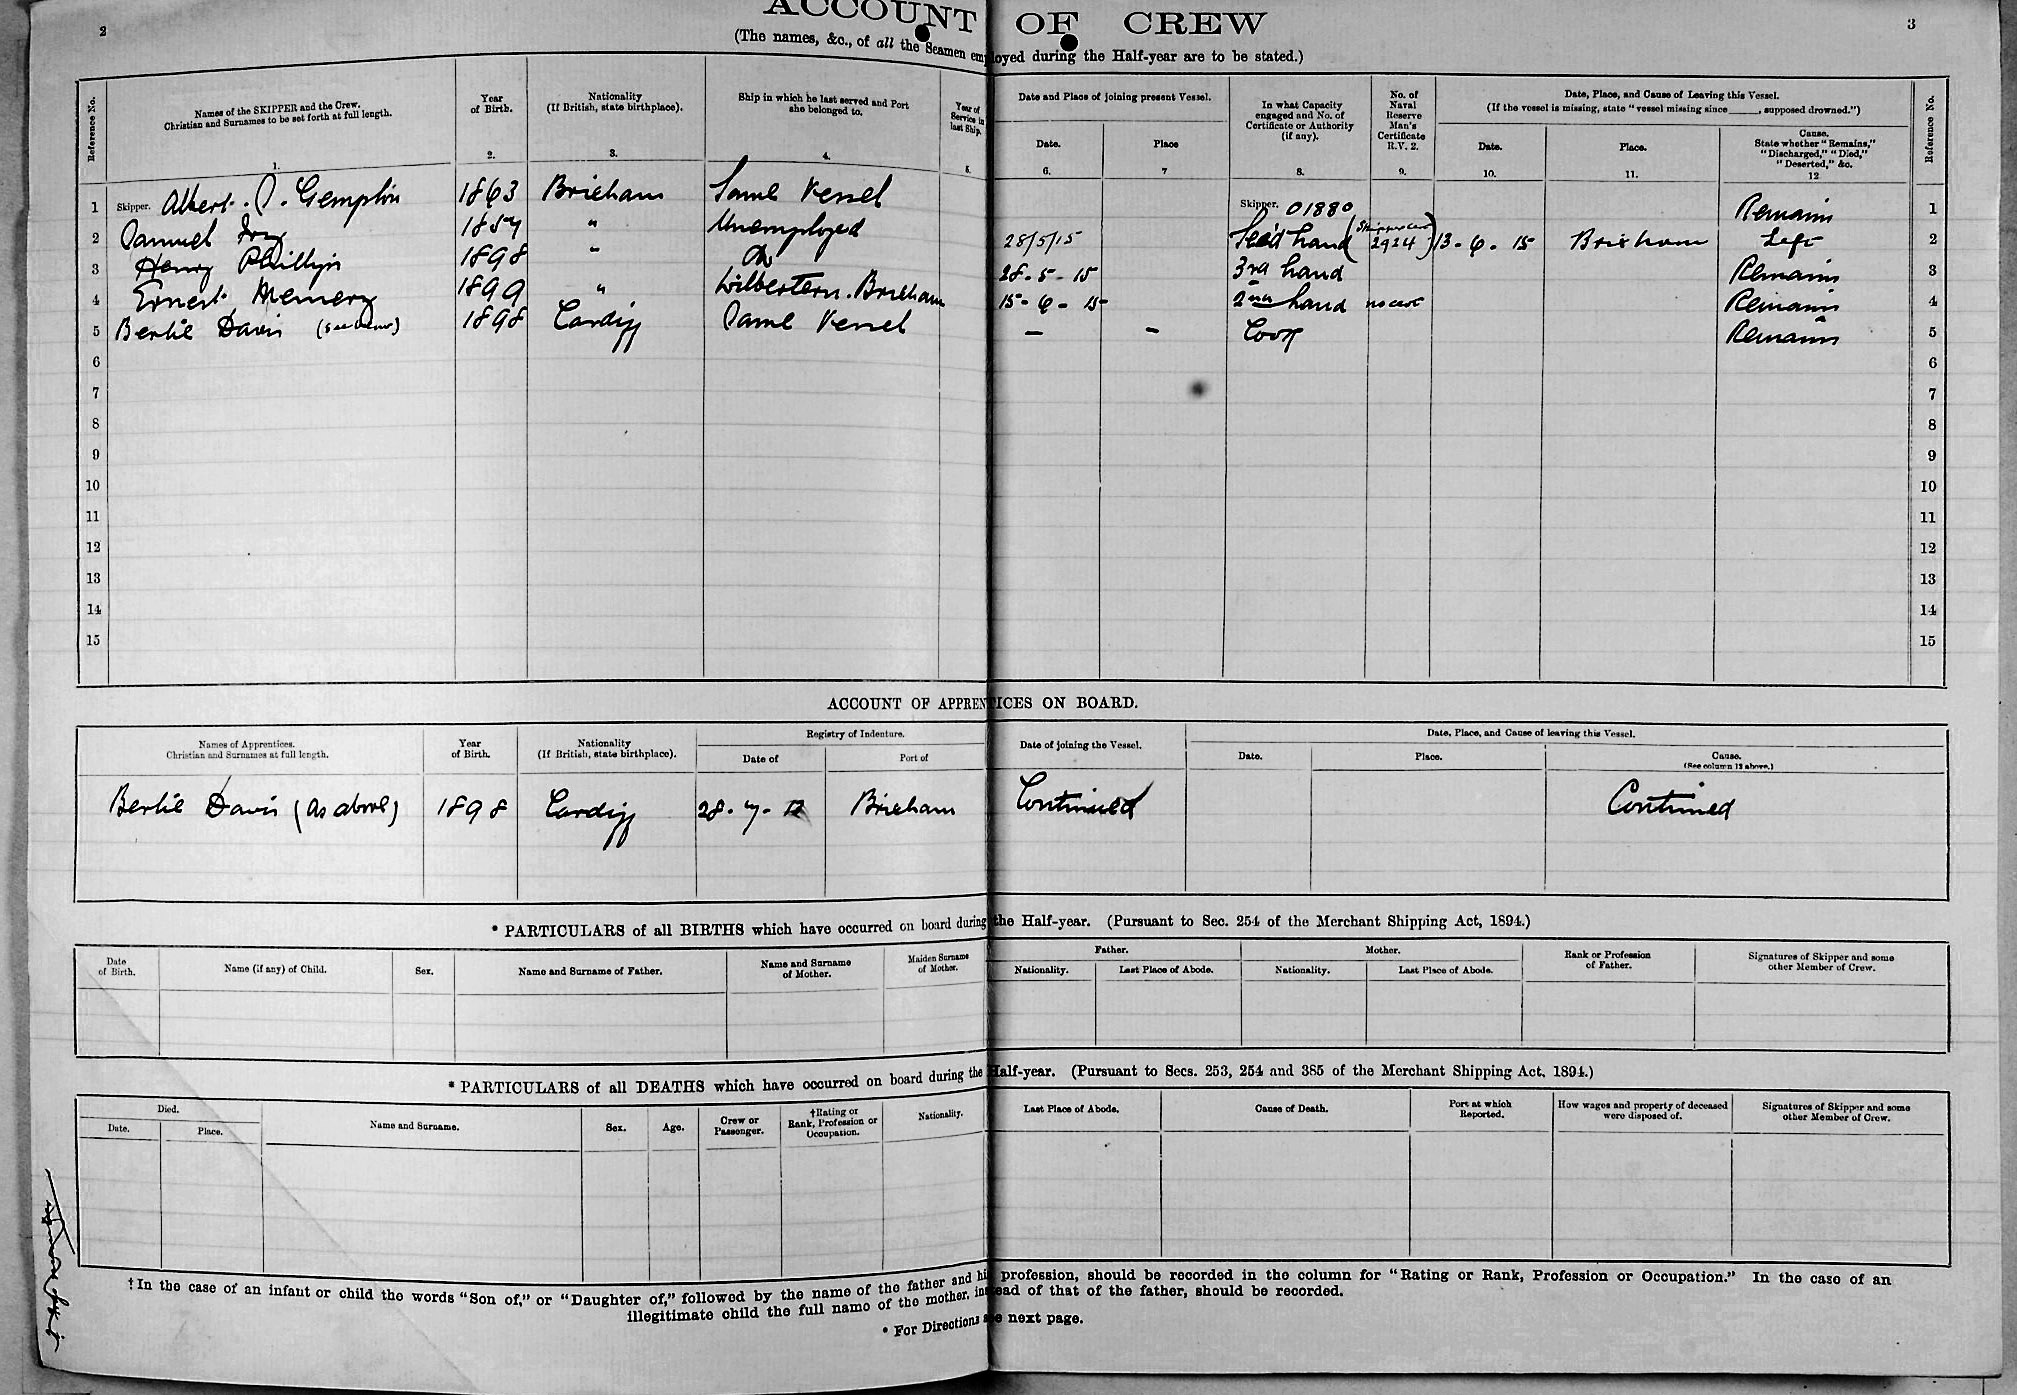 2
ACCOUNT OF CREW
3
(The names, &c., of all the Seamen employed during the Half-year are to be stated.)
Reference No.
Names of the SKIPPER and the Crew.
Christian and Surnames to be set forth at full length.
1.
Year
of Birth.
2.
Nationality
(If British, state birthplace).
3.
Ship in which he last served and Port
she belonged to.
4.
Year of
Service in
last Ship.
5.
Date and Place of joining present Vessel.
Date.
6.
Place
7
In what Capacity
engaged and No. of
Certificate or Authority
(if any).
8.
No. of
Naval
Reserve
Man's
Certificate
R.V. 2.
9.
Date, Place, and Cause of Leaving this Vessel.
(If the vessel is missing, state "vessel missing since ____, supposed drowned.")
Date.
10.
Place.
11.
Cause.
State whether "Remains,"
"Discharged," "Died,"
"Deserted," &c.
12
Reference No.
1 Skipper. Albert. J. Gempton 1863 Brixham Same Vessel Skipper. 01880 Remains 1
2 Samuel 1857 " Unemployed 28/5/15 Sec'd hand (Skippers Cert 2924) 13-6-15 Brixham Left 2
3 Henry Phillips 1898 " Do 28-5-15 3rd hand Remains 3
4 Ernest Memery 1899 " Brixham 15-6-15 2nd hand no cert Remains 4
5 Bertie Davis (see below) 1898 Cardiff Same Vessel - - Cook Remains 5
6 6
7 7
8 8
9 9
10 10
11 11
12 12
13 13
14 14
15 15
ACCOUNT OF APPRENTICES ON BOARD.
Names of Apprentices.
Christian and Surnames at full length.
Year
of Birth.
Nationality
(If British, state birthplace).
Registry of Indenture.
Date of
Port of
Date of joining the Vessel.
Date, Place, and Cause of leaving this Vessel.
Date.
Place.
Cause.
(See column 12 above.)
Bertie Davis (as above) 1898 Cardiff 28-7- Brixham Continued Continued
* PARTICULARS of all BIRTHS which have occurred on board during the Half-year. (Pursuant to Sec. 254 of the Merchant Shipping Act, 1894.)
Date
of Birth.
Name (if any) of Child.
Sex.
Name and Surname of Father.
Name and Surname
of Mother.
Maiden Surname
of Mother.
Father.
Nationality.
Last Place of Abode.
Mother.
Nationality.
Last Place of Abode.
Rank or Profession
of Father.
Signatures of Skipper and some
other Member of Crew.
* PARTICULARS of all DEATHS which have occurred on board during the Half-year. (Pursuant to Secs. 253, 254 and 385 of the Merchant Shipping Act, 1894.)
Died.
Date.
Place.
Name and Surname.
Sex.
Age.
Crew or
Passenger.
†Rating or
Rank, Profession or
Occupation.
Nationality.
Last Place of Abode.
Cause of Death.
Port at which
Reported.
How wages and property of deceased
were disposed of.
Signatures of Skipper and some
other Member of Crew.
†In the case of an infant or child the words "Son of," or "Daughter of," followed by the name of the father and his profession, should be recorded in the column for "Rating or Rank, Profession or Occupation." In the case of an
illegitimate child the full name of the mother, instead of that of the father, should be recorded.
* For Directions see next page.